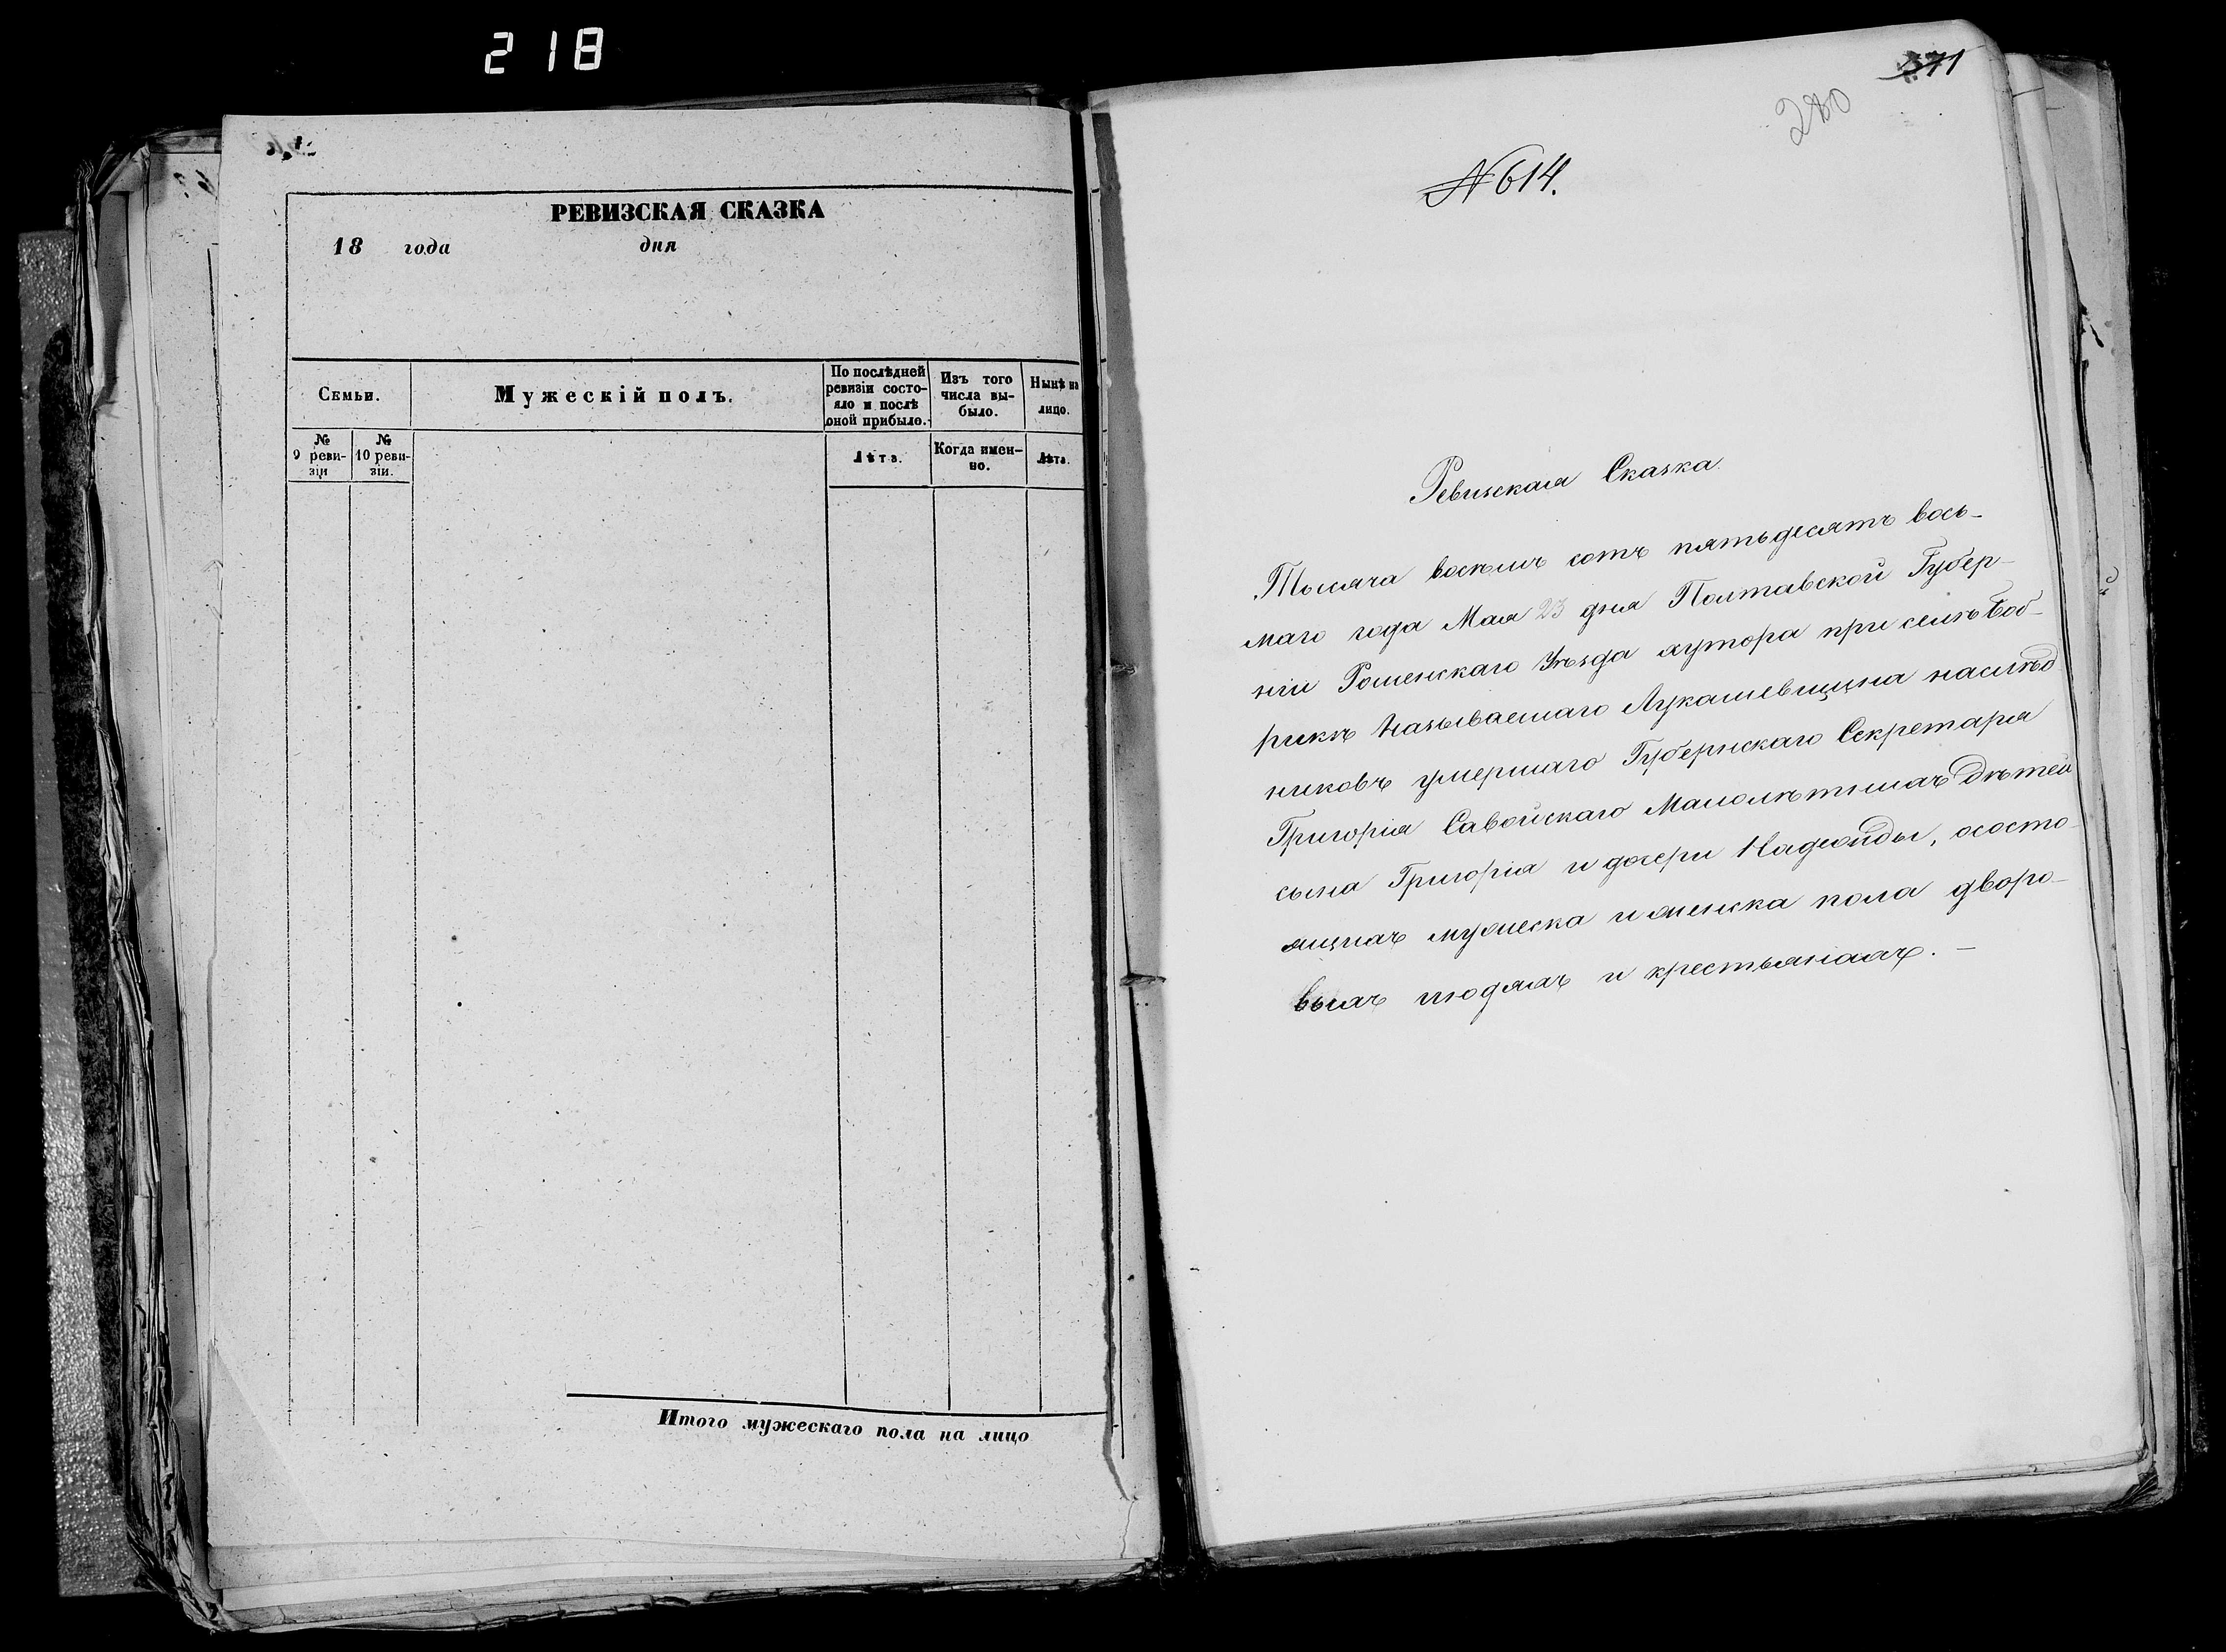 218
РЕВИЗСКАЯ СКАЗКА
18 года дня
Семьи.
Мужескій полъ.
По послѣдней ревизіи состояло и послѣ оной прибыло.
Изъ того числа выбыло.
Нынѣ на лицо.
№ 9 ревизіи
№ 10 ревизіи.
Лѣта.
Когда именно.
Лѣта.
Итого мужескаго пола на лицо
371
280
№ 614.
Ревизская Сказка.
Тысяча восемь сотъ пятьдесятъ вось-
маго года Мая 23 дня Полтавской Губер-
ніи Роменскаго Уѣзда хутора при селѣ Боб-
рикѣ называемаго Лукашевщина наслѣд
никовъ умершаго Губернскаго Секретаря
Григорія Савойскаго Малолѣтнихъ дѣтей
сына Григорія и дочери Надежды, о состо-
ящихъ мужеска и женска пола дворо-
выхъ людяхъ и крестьянахъ. —